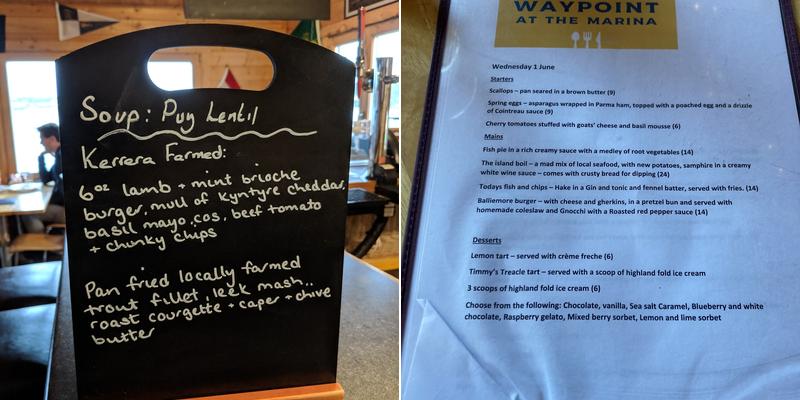 Soup: Puy Lentil
Kerrera Farmed:
6oz lamb + mint brioche
burger, mull of Kyntyre cheddar,
basil mayo, cos, beef tomato
+ chunky chips
Pan fried locally farmed
trout fillet, leek mash,
roast courgette + caper + chive
butter
WAYPOINT
AT THE MARINA
Wednesday 1 June
Starters
Scallops – pan seared in a brown butter (9)
Spring eggs – asparagus wrapped in Parma ham, topped with a poached egg and a drizzle
of Cointreau sauce (9)
Cherry tomatoes stuffed with goats' cheese and basil mousse (6)
Mains
Fish pie in a rich creamy sauce with a medley of root vegetables (14)
The island boil – a mad mix of local seafood, with new potatoes, samphire in a creamy
white wine sauce – comes with crusty bread for dipping (24)
Todays fish and chips – Hake in a Gin and tonic and fennel batter, served with fries. (14)
Balliemore burger – with cheese and gherkins, in a pretzel bun and served with
homemade coleslaw and Gnocchi with a Roasted red pepper sauce (14)
Desserts
Lemon tart – served with crème freche (6)
Timmy's Treacle tart – served with a scoop of highland fold ice cream
3 scoops of highland fold ice cream (6)
Choose from the following: Chocolate, vanilla, Sea salt Caramel, Blueberry and white
chocolate, Raspberry gelato, Mixed berry sorbet, Lemon and lime sorbet